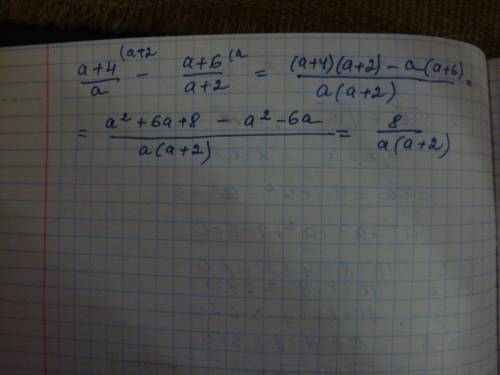 (a+4)/a ^(a+2 − (a+6)/(a+2) ^(a = ((a+4)(a+2) − a(a+6))/(a(a+2)) =
= (a² + 6a + 8 − a² − 6a)/(a(a+2)) = 8/(a(a+2))